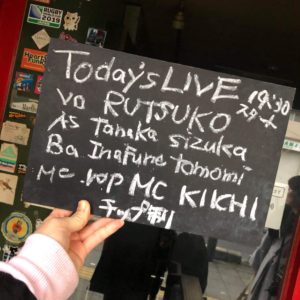 Today's LIVE
19:30
スタート
vo RUTSUKO
AS Tanaka sizuka
Ba. Inafune tomomi
Mc. rap MC KIICHI
チップ制
RUGBY
2019